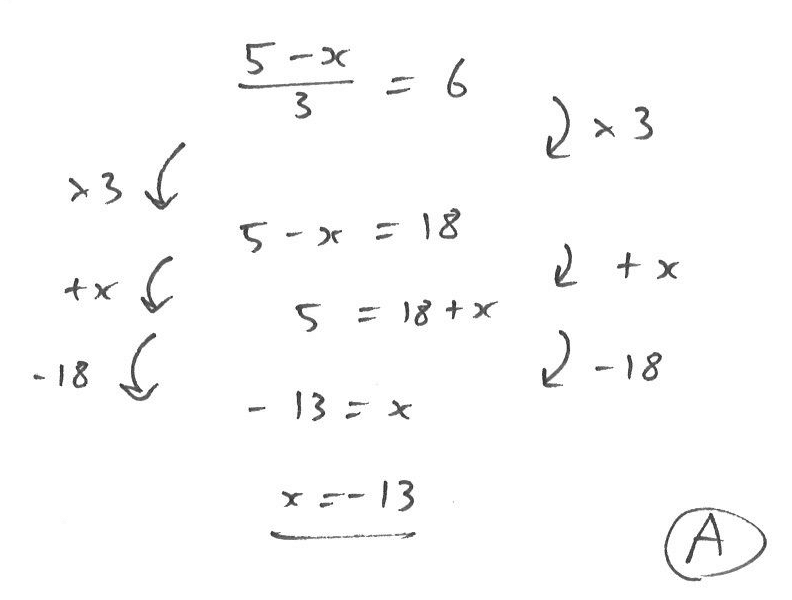 5 - x / 3 = 6
× 3
× 3
5 - x = 18
+ x
+ x
5 = 18 + x
- 18
- 18
- 13 = x
x = - 13
A